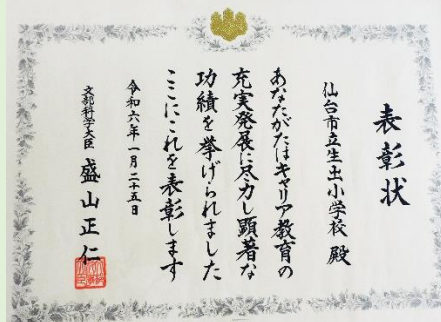 表彰状
仙台市立生出小学校 殿
あなたがたはキャリア教育の
充実発展に尽力し顕著な
功績を挙げられました
ここにこれを表彰します
令和六年一月二十五日
文部科学大臣 盛山正仁